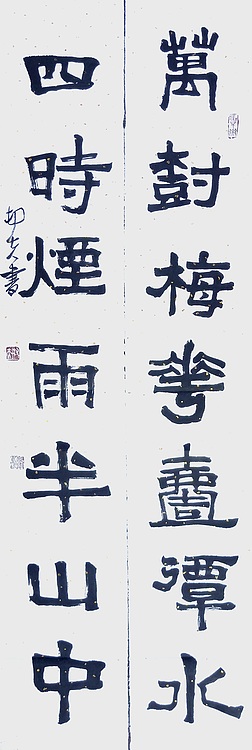 萬樹梅華壹潭水
四時煙雨半山中
書